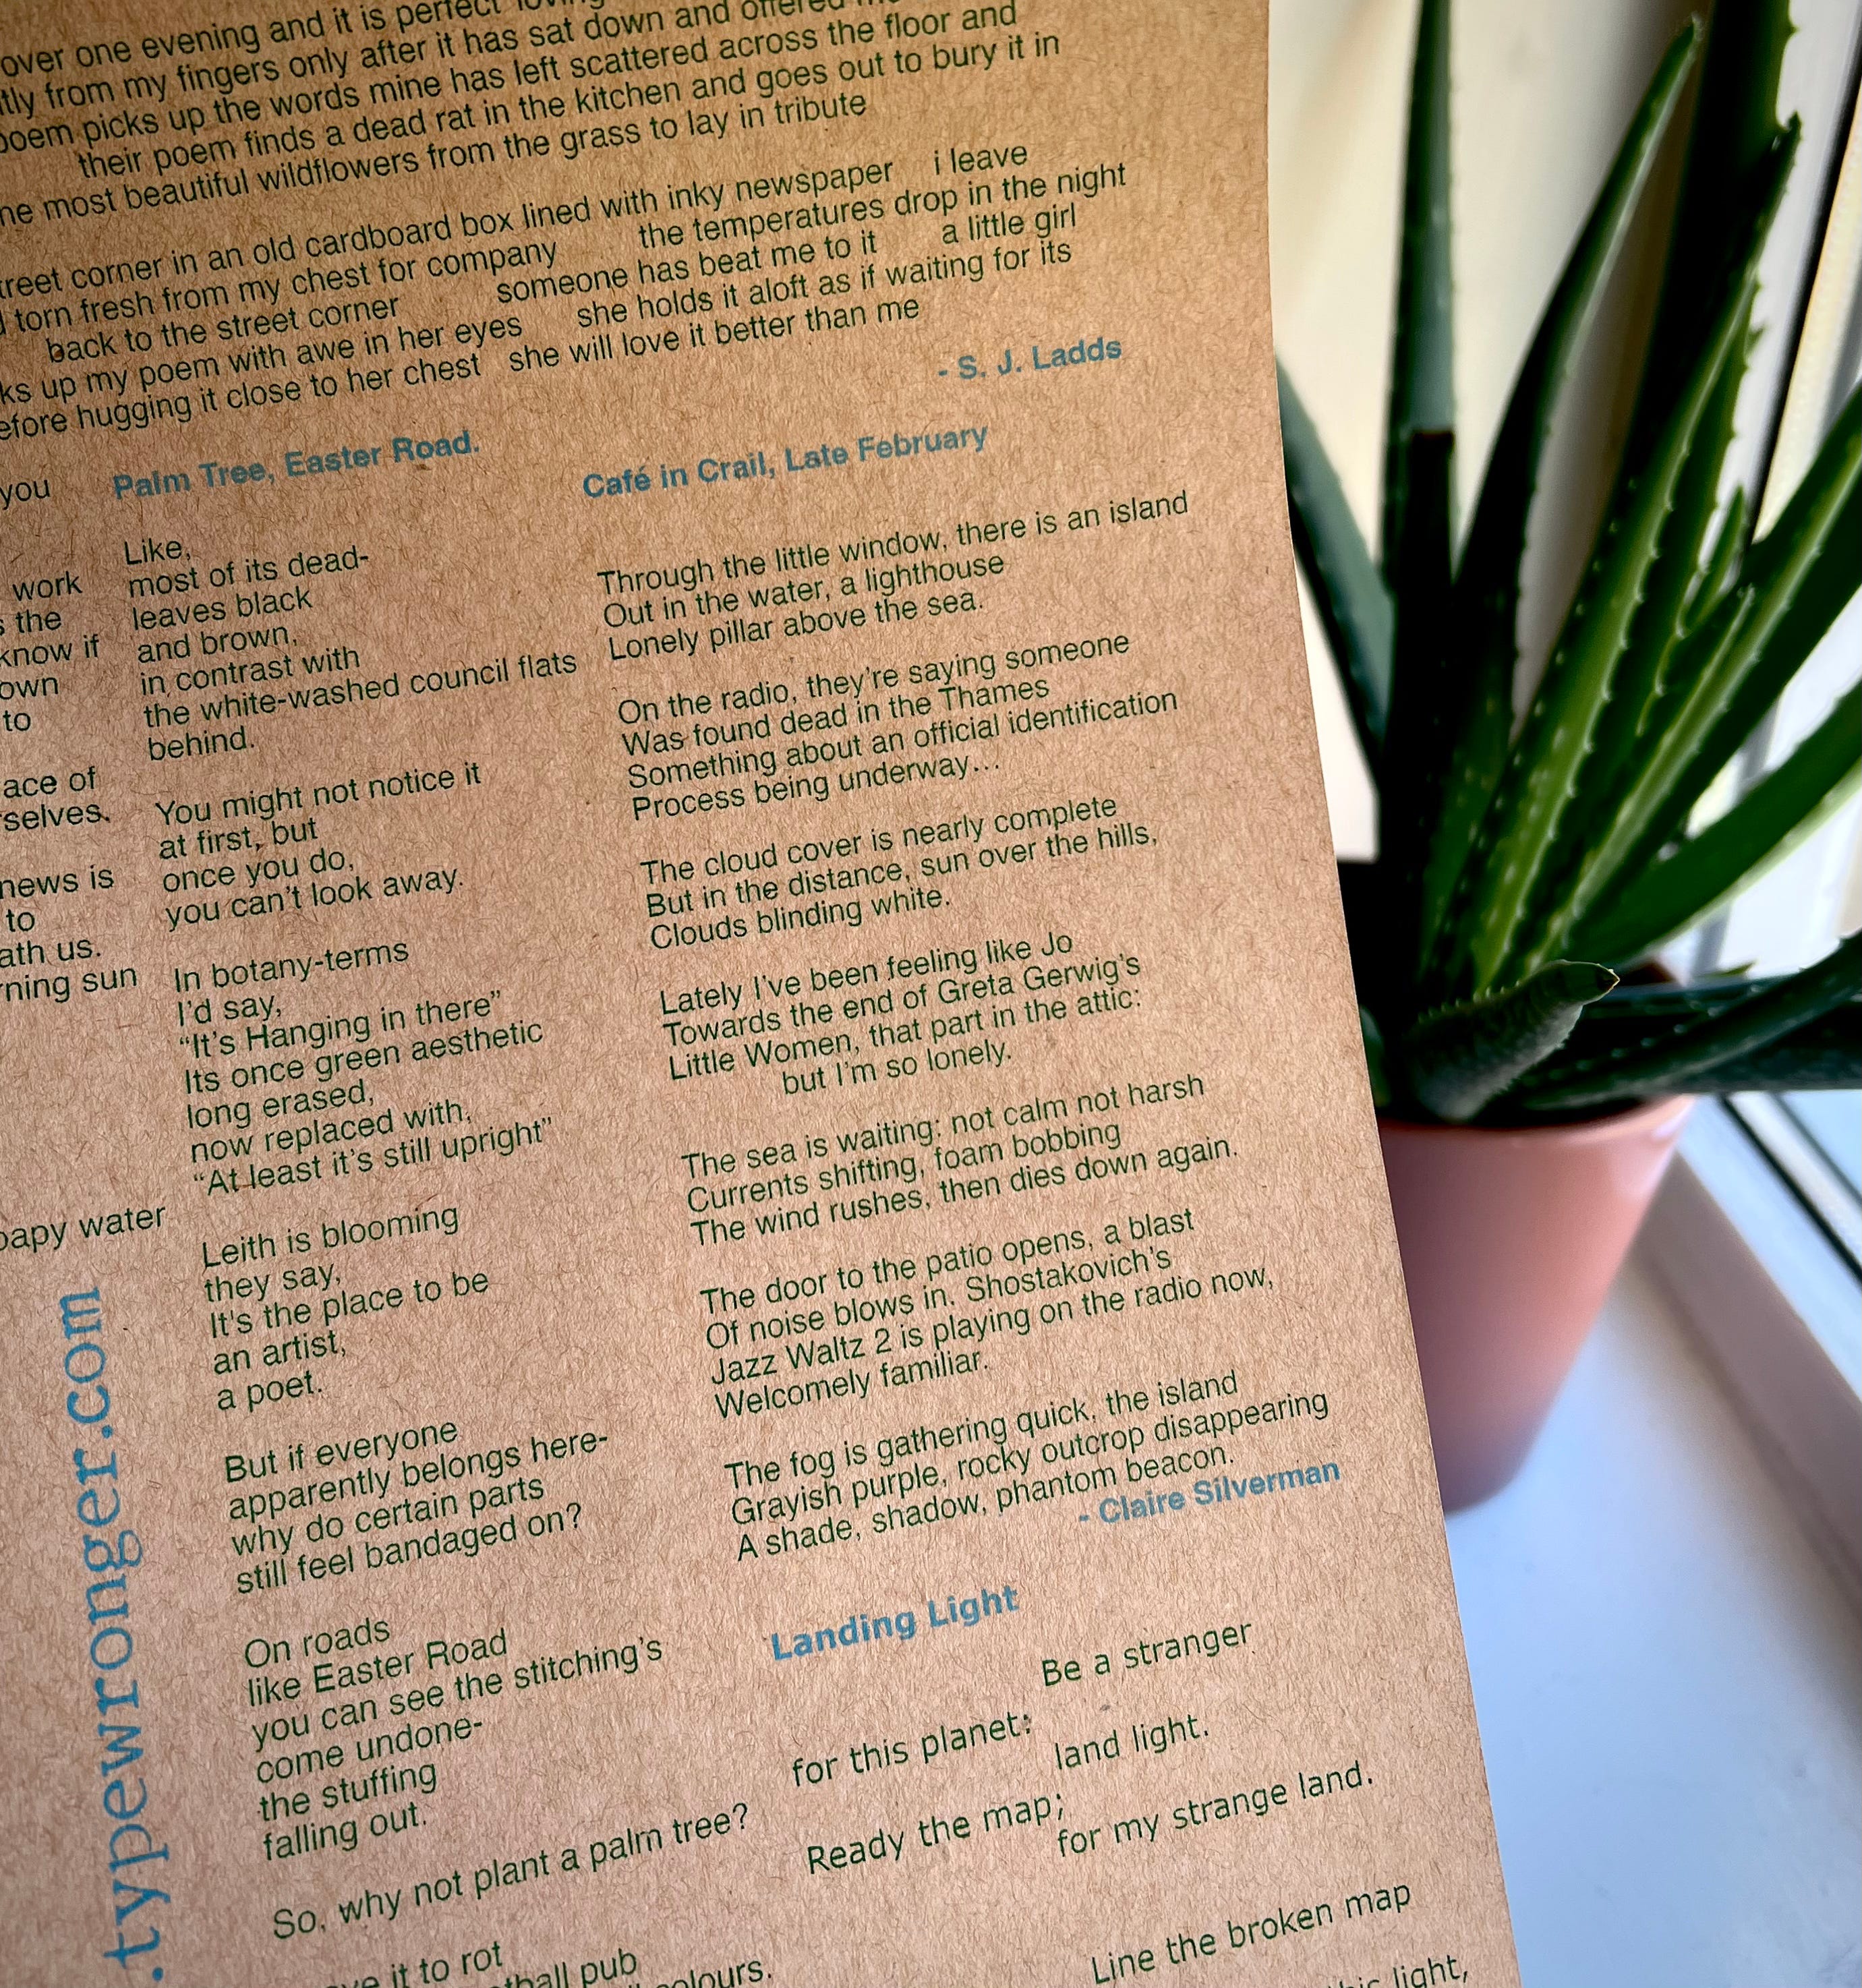 over one evening and it is perfect
from my fingers only after it has sat down and offered
poem picks up the words mine has left scattered across the floor and
their poem finds a dead rat in the kitchen and goes out to bury it in
most beautiful wildflowers from the grass to lay in tribute
street corner in an old cardboard box lined with inky newspaper i leave
torn fresh from my chest for company the temperatures drop in the night
back to the street corner someone has beat me to it a little girl
up my poem with awe in her eyes she holds it aloft as if waiting for its
before hugging it close to her chest she will love it better than me
- S. J. Ladds
you
work
the
know if
own
to
ace of
selves.
news is
to
ath us.
rning sun
oapy water
.typewronger.com
Palm Tree, Easter Road.
Like,
most of its dead-
leaves black
and brown,
in contrast with
the white-washed council flats
behind.
You might not notice it
at first, but
once you do,
you can't look away.
In botany-terms
I'd say,
“It's Hanging in there”
Its once green aesthetic
long erased,
now replaced with,
“At least it's still upright”
Leith is blooming
they say,
It's the place to be
an artist,
a poet.
But if everyone
apparently belongs here-
why do certain parts
still feel bandaged on?
On roads
like Easter Road
you can see the stitching's
come undone-
the stuffing
falling out.
So, why not plant a palm tree?
it to rot
pub
colours.
Café in Crail, Late February
Through the little window, there is an island
Out in the water, a lighthouse
Lonely pillar above the sea.
On the radio, they're saying someone
Was found dead in the Thames
Something about an official identification
Process being underway...
The cloud cover is nearly complete
But in the distance, sun over the hills,
Clouds blinding white.
Lately I've been feeling like Jo
Towards the end of Greta Gerwig's
Little Women, that part in the attic:
but I'm so lonely.
The sea is waiting: not calm not harsh
Currents shifting, foam bobbing
The wind rushes, then dies down again.
The door to the patio opens, a blast
Of noise blows in. Shostakovich's
Jazz Waltz 2 is playing on the radio now,
Welcomely familiar.
The fog is gathering quick, the island
Grayish purple, rocky outcrop disappearing
A shade, shadow, phantom beacon.
- Claire Silverman
Landing Light
Be a stranger
for this planet:
land light.
Ready the map;
for my strange land.
Line the broken map
light,